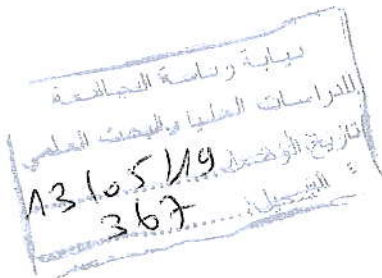 نيابة رئاسة الجامعة
للدراسات العليا والبحث العلمي
تاريخ الوصول: 13/05/19
التسجيل: 367